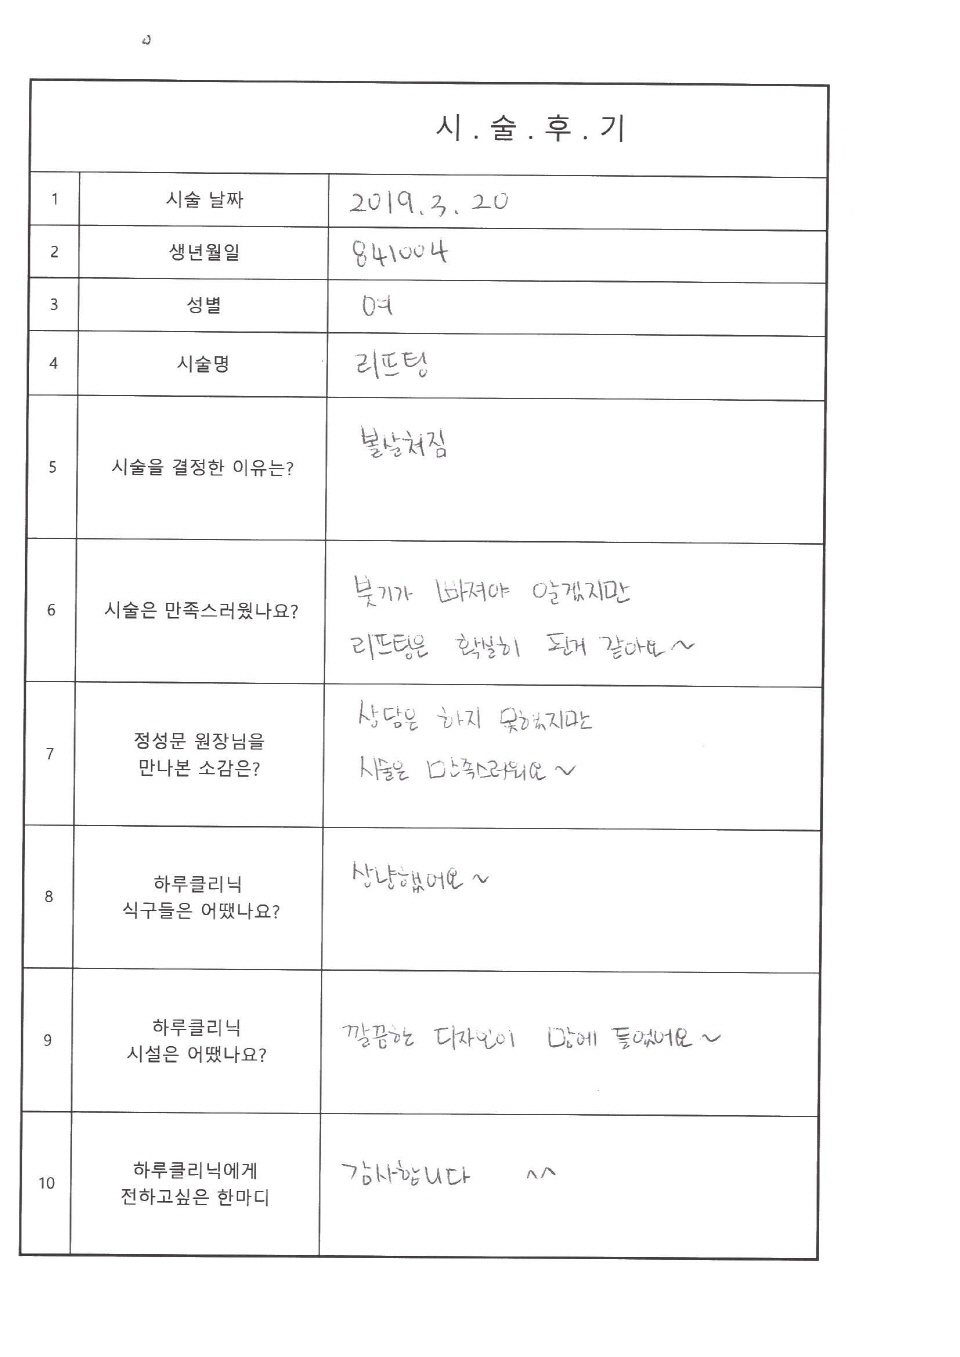 시.술.후.기
1 시술 날짜 2019.3.20
2 생년월일 841004
3 성별 여
4 시술명 리프팅
5 시술을 결정한 이유는? 볼살처짐
6 시술은 만족스러웠나요? 붓기가 빠져야 알겠지만
리프팅은 확실히 된거 같아요~
7 정성문 원장님을
만나본 소감은?
상담은 하지 못했지만
시술은 만족스러워요~
8 하루클리닉
식구들은 어땠나요?
상냥했어요~
9 하루클리닉
시설은 어땠나요?
깔끔한 디자인이 맘에 들었어요~
10 하루클리닉에게
전하고싶은 한마디
감사합니다 ^^